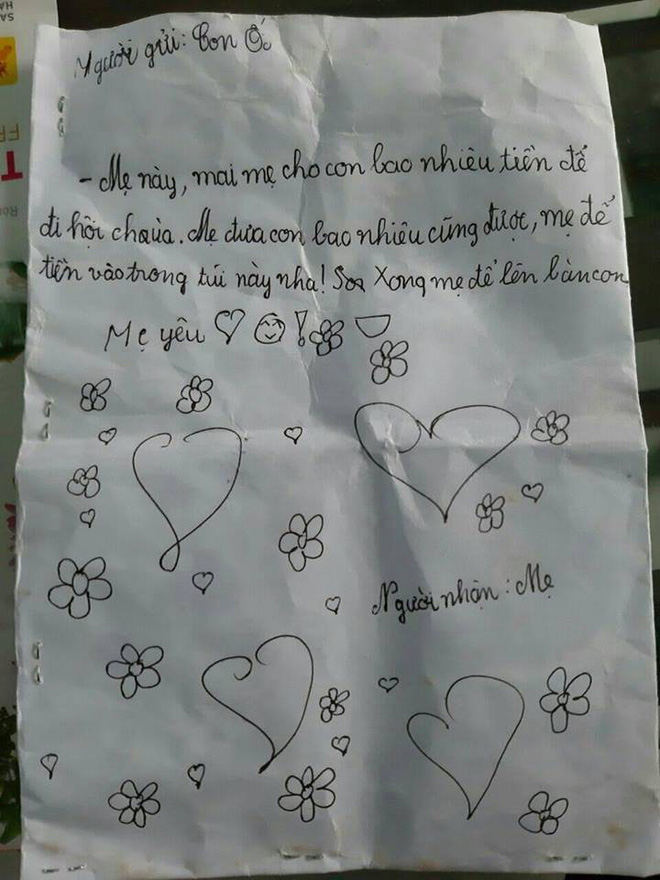 Người gửi: Con Ố
- Mẹ này, mai mẹ cho con bao nhiêu tiền để
đi hội chưùa. Mẹ đưa con bao nhiêu cũng được, mẹ để
tiền vào trong túi này nha! Xong mẹ để lên bàn con
Mẹ yêu ♡ ☺ !
Người nhận: Mẹ